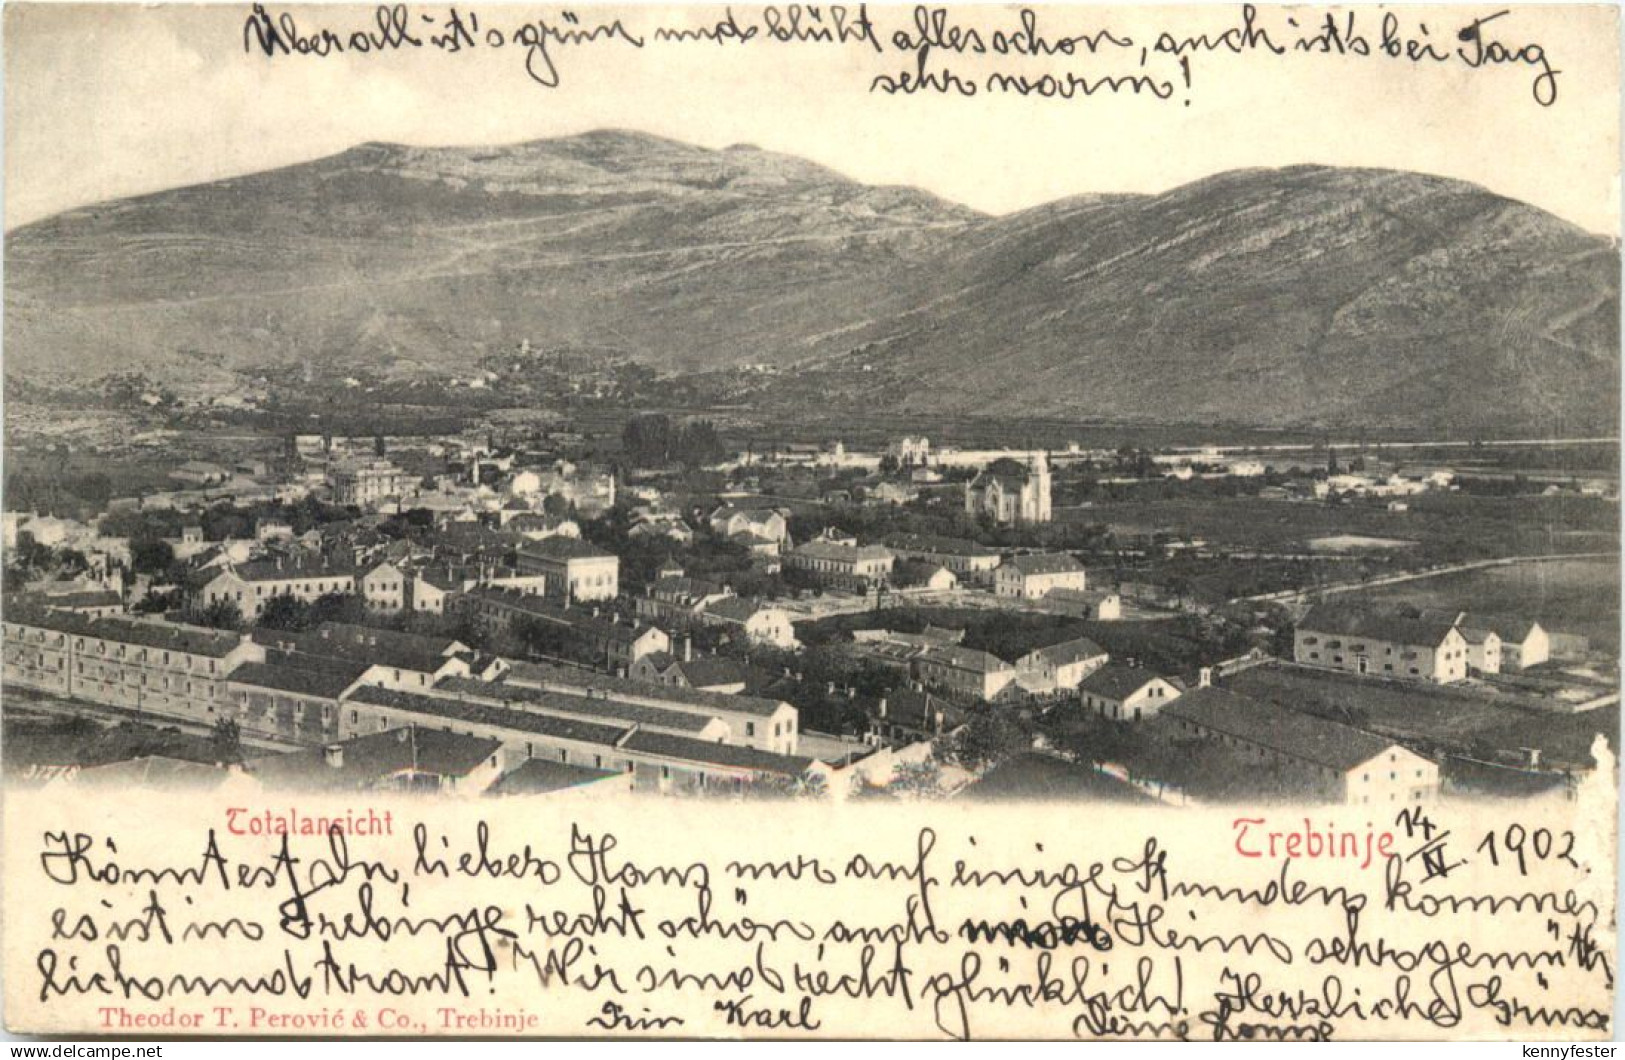 Überall ist's grün und blüht alles schon, auch ist's bei Tag
sehr warm!
31778
Totalansicht
Trebinje
14/IV. 1902.
Könntest Du, lieber Hans nur auf einige Stunden kommen
es ist in Trebinje recht schön, auch Heim sehr gemüth
lich und traut! Wir sind recht glücklich! Herzliche Grüsse
Theodor T. Perović & Co., Trebinje
Karl
Deine
delcampe.net
kennyfester